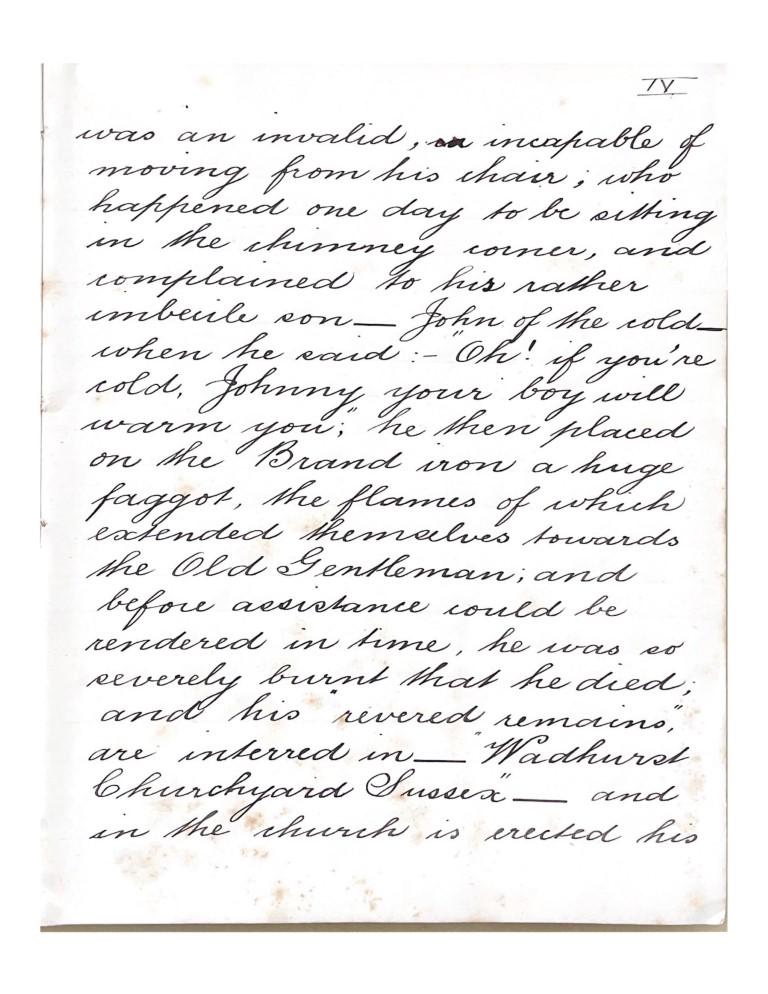 IV
was an invalid, incapable of
moving from his chair; who
happened one day to be sitting
in the chimney corner, and
complained to his rather
imbecile son — John of the cold —
when he said :- "Oh! if you're
cold, Johnny your boy will
warm you;" he then placed
on the Brand iron a huge
faggot, the flames of which
extended themselves towards
the Old Gentleman; and
before assistance could be
rendered in time, he was so
severely burnt that he died;
and his "revered remains,"
are interred in — "Wadhurst
Churchyard Sussex" — and
in the church is erected his